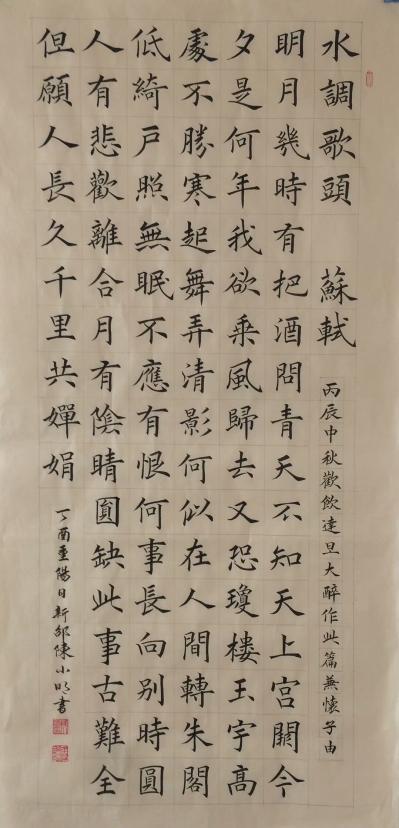 水調歌頭 蘇軾 丙辰中秋歡飲達旦大醉作此篇兼懷子由
明月幾時有把酒問青天不知天上宮闕今
夕是何年我欲乘風歸去又恐瓊樓玉宇高
處不勝寒起舞弄清影何似在人間轉朱閣
低綺戶照無眠不應有恨何事長向別時圓
人有悲歡離合月有陰晴圓缺此事古難全
但願人長久千里共嬋娟
丁酉重陽日新邵陳小明書